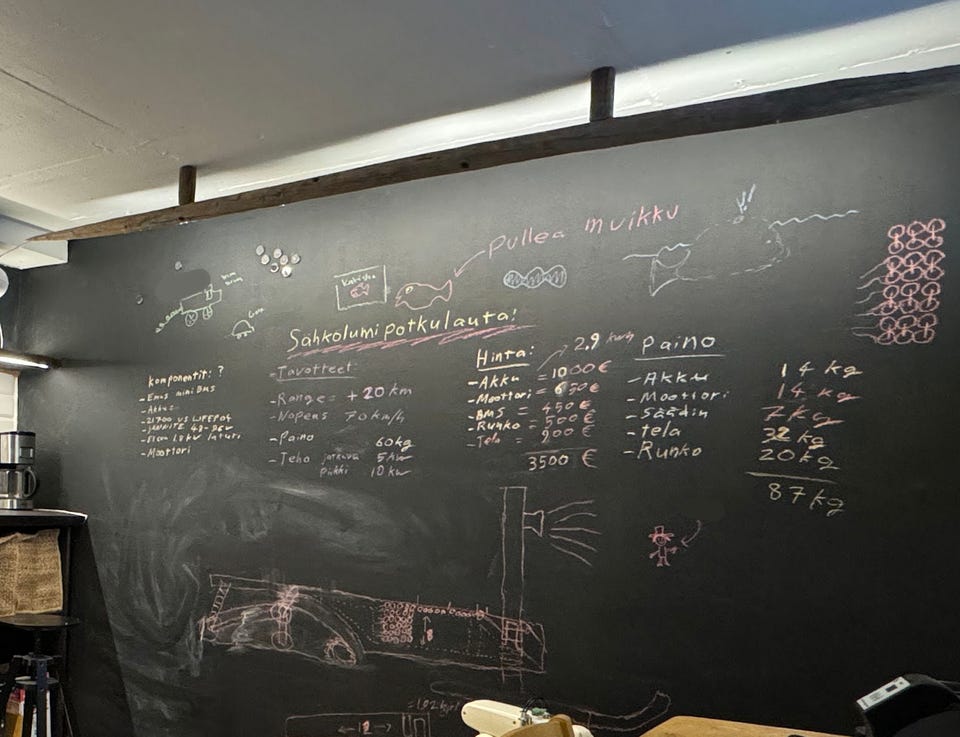 Pullea muikku
Sähkölumipotkulauta!
Komponentit: ?
- Akku
- 21700 vs LIFEPO4
- Moottori
- Tavotteet:
- Range = +20 km
- Nopeus 70 km/h
- Paino 60kg
- Teho jatkuva 5kw
Piikki 10 kw
Hinta: 2.9 kwh
- Akku = 1000 €
- Moottori = 650 €
- BMS = 450 €
- Runko = 500 €
- Tela = 900 €
3500 €
Paino
- Akku 14 kg
- Moottori 14 kg
- Säädin 7 kg
- tela 32 kg
- Runko 20 kg
87 kg
8
12